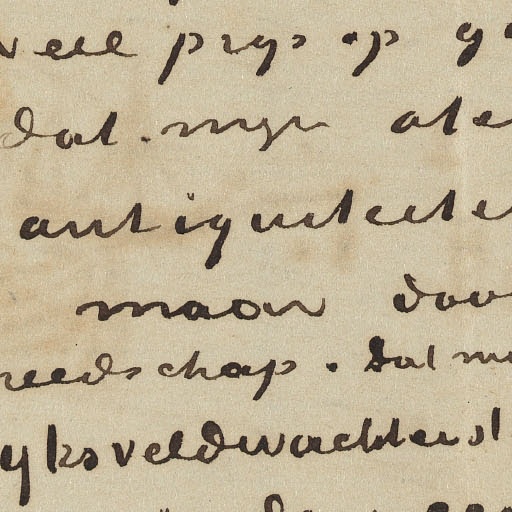 veel prys op g
dat myn ate
antiquiteite
maar doo
reedschap. dat m
yksveldwachters